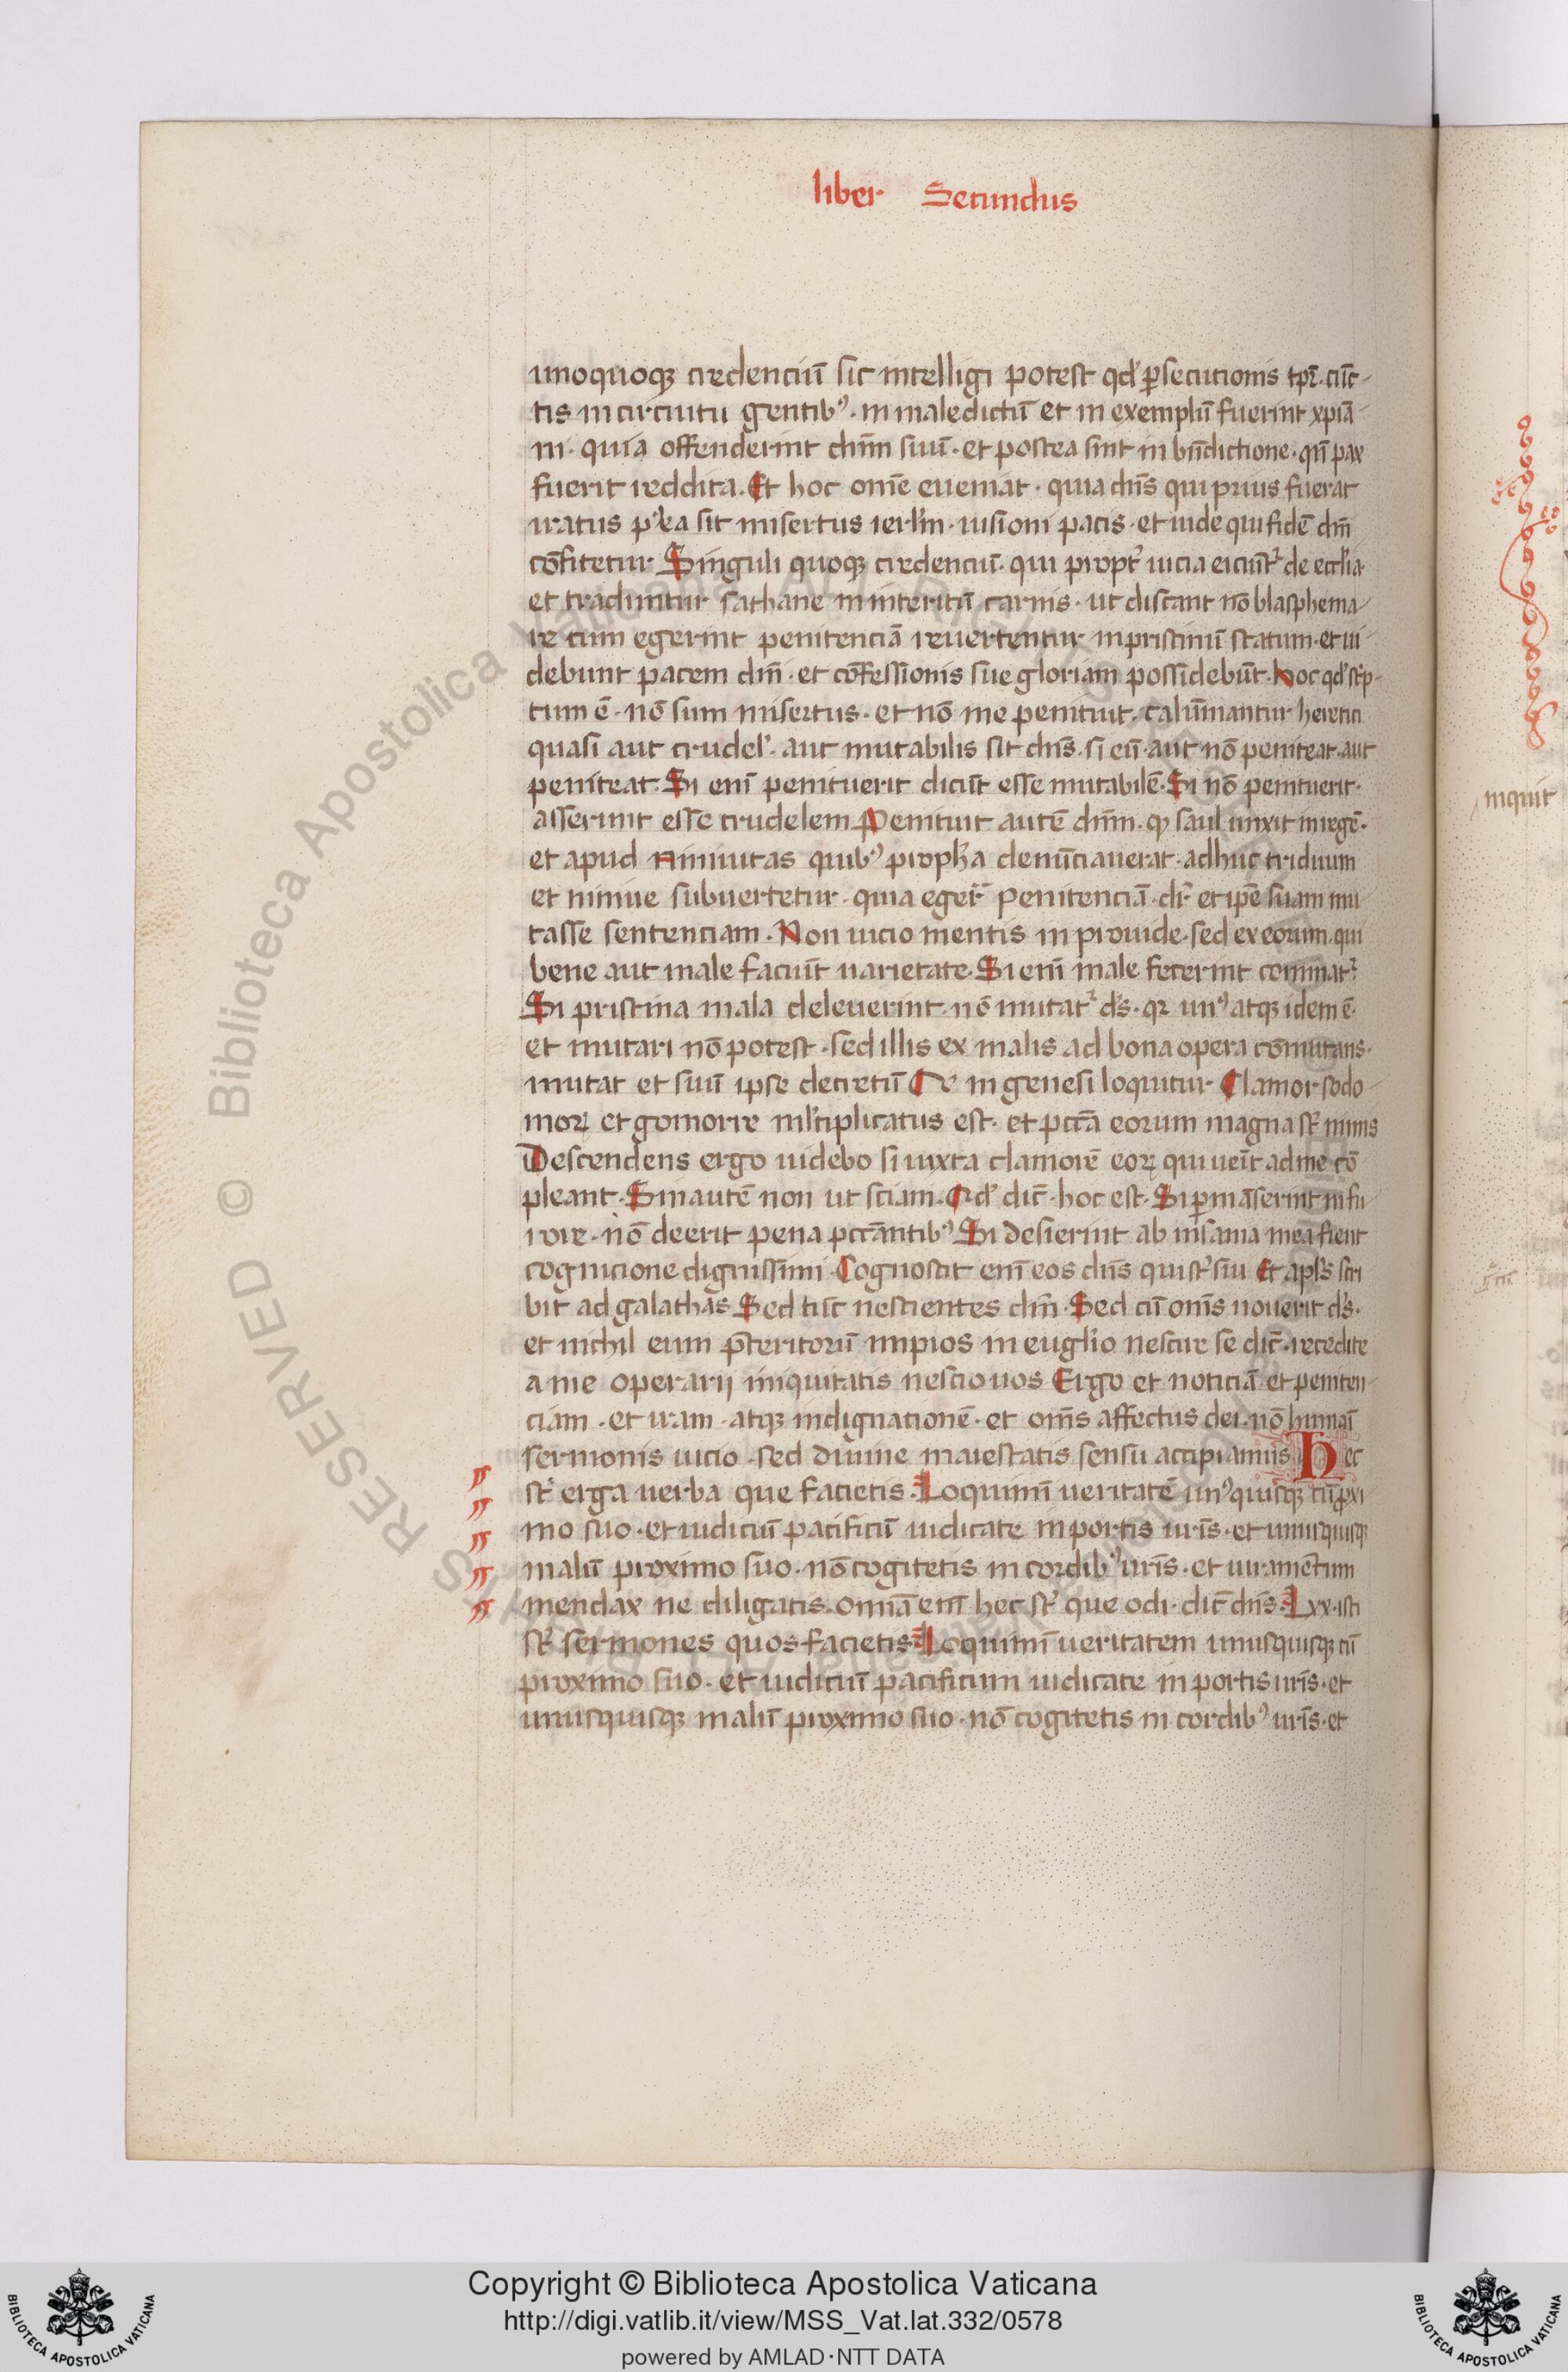 liber Secundus
unoquoqꝫ credenciū sic intelligi potest qđ ꝑsecutionis tpr̄. cūc-
tis in circuitu gentibꝰ. in maledictū et in exemplū fuerint xpiā-
ni. quia offenderint dn̄m suū. et postea sint in bn̄dictione. qn̄ pax
fuerit reddita. Et hoc om̄e eueniat. quia dn̄s qui prius fuerat
iratus p̉ ea sit misertus ierl̄m. uisioni pacis. et iude qui fidē dn̄i
cōfitetur. Singuli quoqꝫ credenciū. qui propt̉ uicia eiciūt̉ de eccl̉ia
et traduntur sathane in interitū carnis. ut discant nō blasphema-
re cum egerint penitenciā reuertentur in pristinū statum. et ui-
debunt pacem dn̄i. et cōfessionis sue gloriam possidebūt. Hoc qđ sc̉p-
tum ē. nō sum misertus. et nō me penituit. calūmantur heretici
quasi aut crudel̉. aut mutabilis sit dn̄s. si eū. aut nō peniteat. aut
peniteat. Si enī penituerit dicūt esse mutabilē. Si nō penituerit.
asserunt esse crudelem. Penituit autē dn̄m. ꝙ saul unxit in regē.
et apud niniuitas quibꝰ proph̉a denūciauerat. adhuc triduum
et niniue subuertetur. quia eger̄t penitenciā. dr̉ et ip̄e suam mu
tasse sentenciam. Non uicio mentis inprouide. sed ex eorum. qui
bene aut male faciūt uarietate. Si eni male fecerint cominat̉
Si pristina mala deleuerint. nō mutat̉ d̉s. qꝛ unꝰ atqꝫ idem ē.
et mutari nō potest. sed illis ex malis ad bona opera cōmutans.
mutat et suū ipse decretū. Ce in genesi loquitur. Clamor sodo-
moꝝ et gomorre ml̉tiplicatus est. et pcc̄a eorum magna st̉ nimis
Descendens ergo uidebo si iuxta clamorē eoꝝ qui ueīt ad me cō
pleant. Sin autē non ut sciam. Qđ dic̄. hoc est. Si ꝑmāserint in fu-
rore. nō deerit pena pccāntibꝰ Si desierint ab insania mea fient
cognicione dignissimi. Cognoscit enī eos dn̄s qui st̉ sui Et apl̉s scri
bit ad galathas. Sed tūc nescientes dm̄. Sed cū om̄s nouerit d̉s.
et nichil eum p̄teritorū impios in eugl̉io nescire se dic̄. recedite
a me operarij iniquitatis nescio uos Ergo et noticiā et peniten-
ciam. et iram. atqꝫ indignationē. et om̄s affectus dei. nō humāi
sermonis uicio. sed diuine maiestatis sensu accipiamus Hec
st̉ erga uerba que facietis. Loquimī ueritatē unꝰquisqꝫ cū ꝓxi
mo suo. et iudiciū pacificū iudicate in portis ur̄is. et unusquisqꝫ
malū proximo suo. nō cogitetis in cordibꝰ ur̄is. et iuramētum
mendax ne diligatis. Omīa enī hec st̉ que odi. dic̄ dn̄s. Lxx. isti
st̉ sermones quos facietis. Loquimī ueritatem unusquisqꝫ cū
proximo suo. et iudiciū pacificum iudicate in portis ur̄is. et
unusquisqꝫ malū proximo suo. nō cogitetis in cordibꝰ ur̄is. et
inquit
RESERVED © Biblioteca Apostolica Vaticana
Copyright © Biblioteca Apostolica Vaticana
http://digi.vatlib.it/view/MSS_Vat.lat.332/0578
powered by AMLAD·NTT DATA
BIBLIOTECA APOSTOLICA VATICANA
BIBLIOTECA APOSTOLICA VATICANA